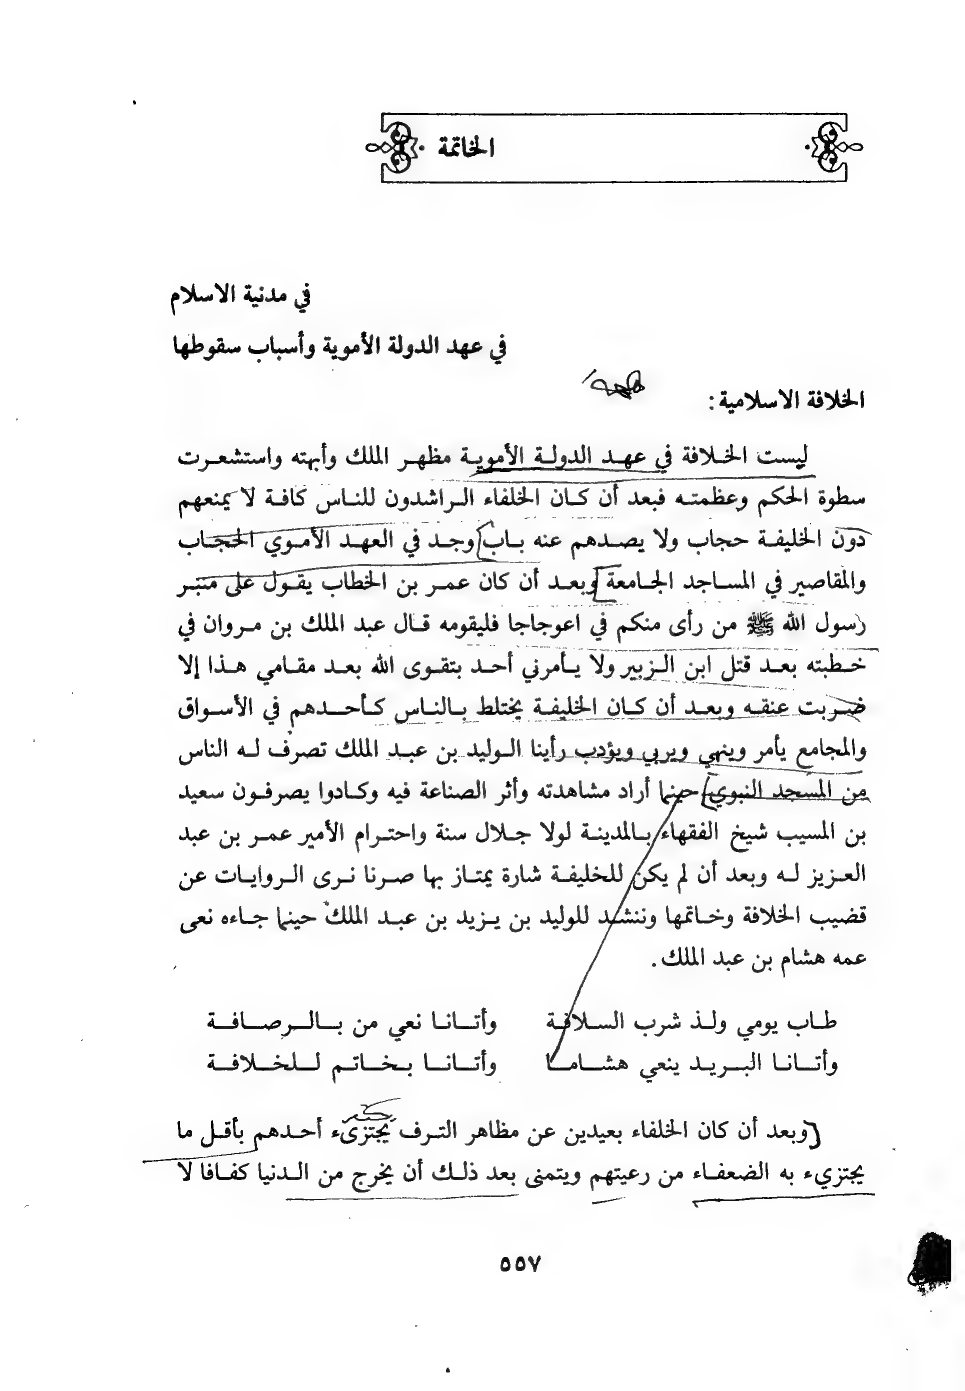 الخاتمة
في مدنية الاسلام
في عهد الدولة الأموية وأسباب سقوطها
الخلافة الاسلامية:
ليست الخلافة في عهد الدولة الأموية مظهر الملك وأبهته واستشعرت
سطوة الحكم وعظمته فبعد أن كان الخلفاء الراشدون للناس كافة لا يمنعهم
دون الخليفة حجاب ولا يصدهم عنه باب وجد في العهد الأموي الحجاب
والمقاصير في المساجد الجامعة وبعد أن كان عمر بن الخطاب يقول على منبر
رسول الله ﷺ من رأى منكم في اعوجاجا فليقومه قال عبد الملك بن مروان في
خطبته بعد قتل ابن الزبير ولا يأمرني أحد بتقوى الله بعد مقامي هذا إلا
ضربت عنقه وبعد أن كان الخليفة يختلط بالناس كأحدهم في الأسواق
والمجامع يأمر وينهي ويربي ويؤدب رأينا الوليد بن عبد الملك تصرف له الناس
من المسجد النبوي حينما أراد مشاهدته وأثر الصناعة فيه وكادوا يصرفون سعيد
بن المسيب شيخ الفقهاء بالمدينة لولا جلال سنة واحترام الأمير عمر بن عبد
العزيز له وبعد أن لم يكن للخليفة شارة يمتاز بها صرنا نرى الروايات عن
قضيب الخلافة وخاتمها وننشد للوليد بن يزيد بن عبد الملك حينما جاءه نعى
عمه هشام بن عبد الملك.
طاب يومي ولذ شرب السلافة وأتانا نعي من بالرصافة
وأتانا البريد ينعي هشاما وأتانا بخاتم للخلافة
وبعد أن كان الخلفاء بعيدين عن مظاهر الترف يجتزىء أحدهم بأقل ما
يجتزيء به الضعفاء من رعيتهم ويتمنى بعد ذلك أن يخرج من الدنيا كفافا لا
٥٥٧